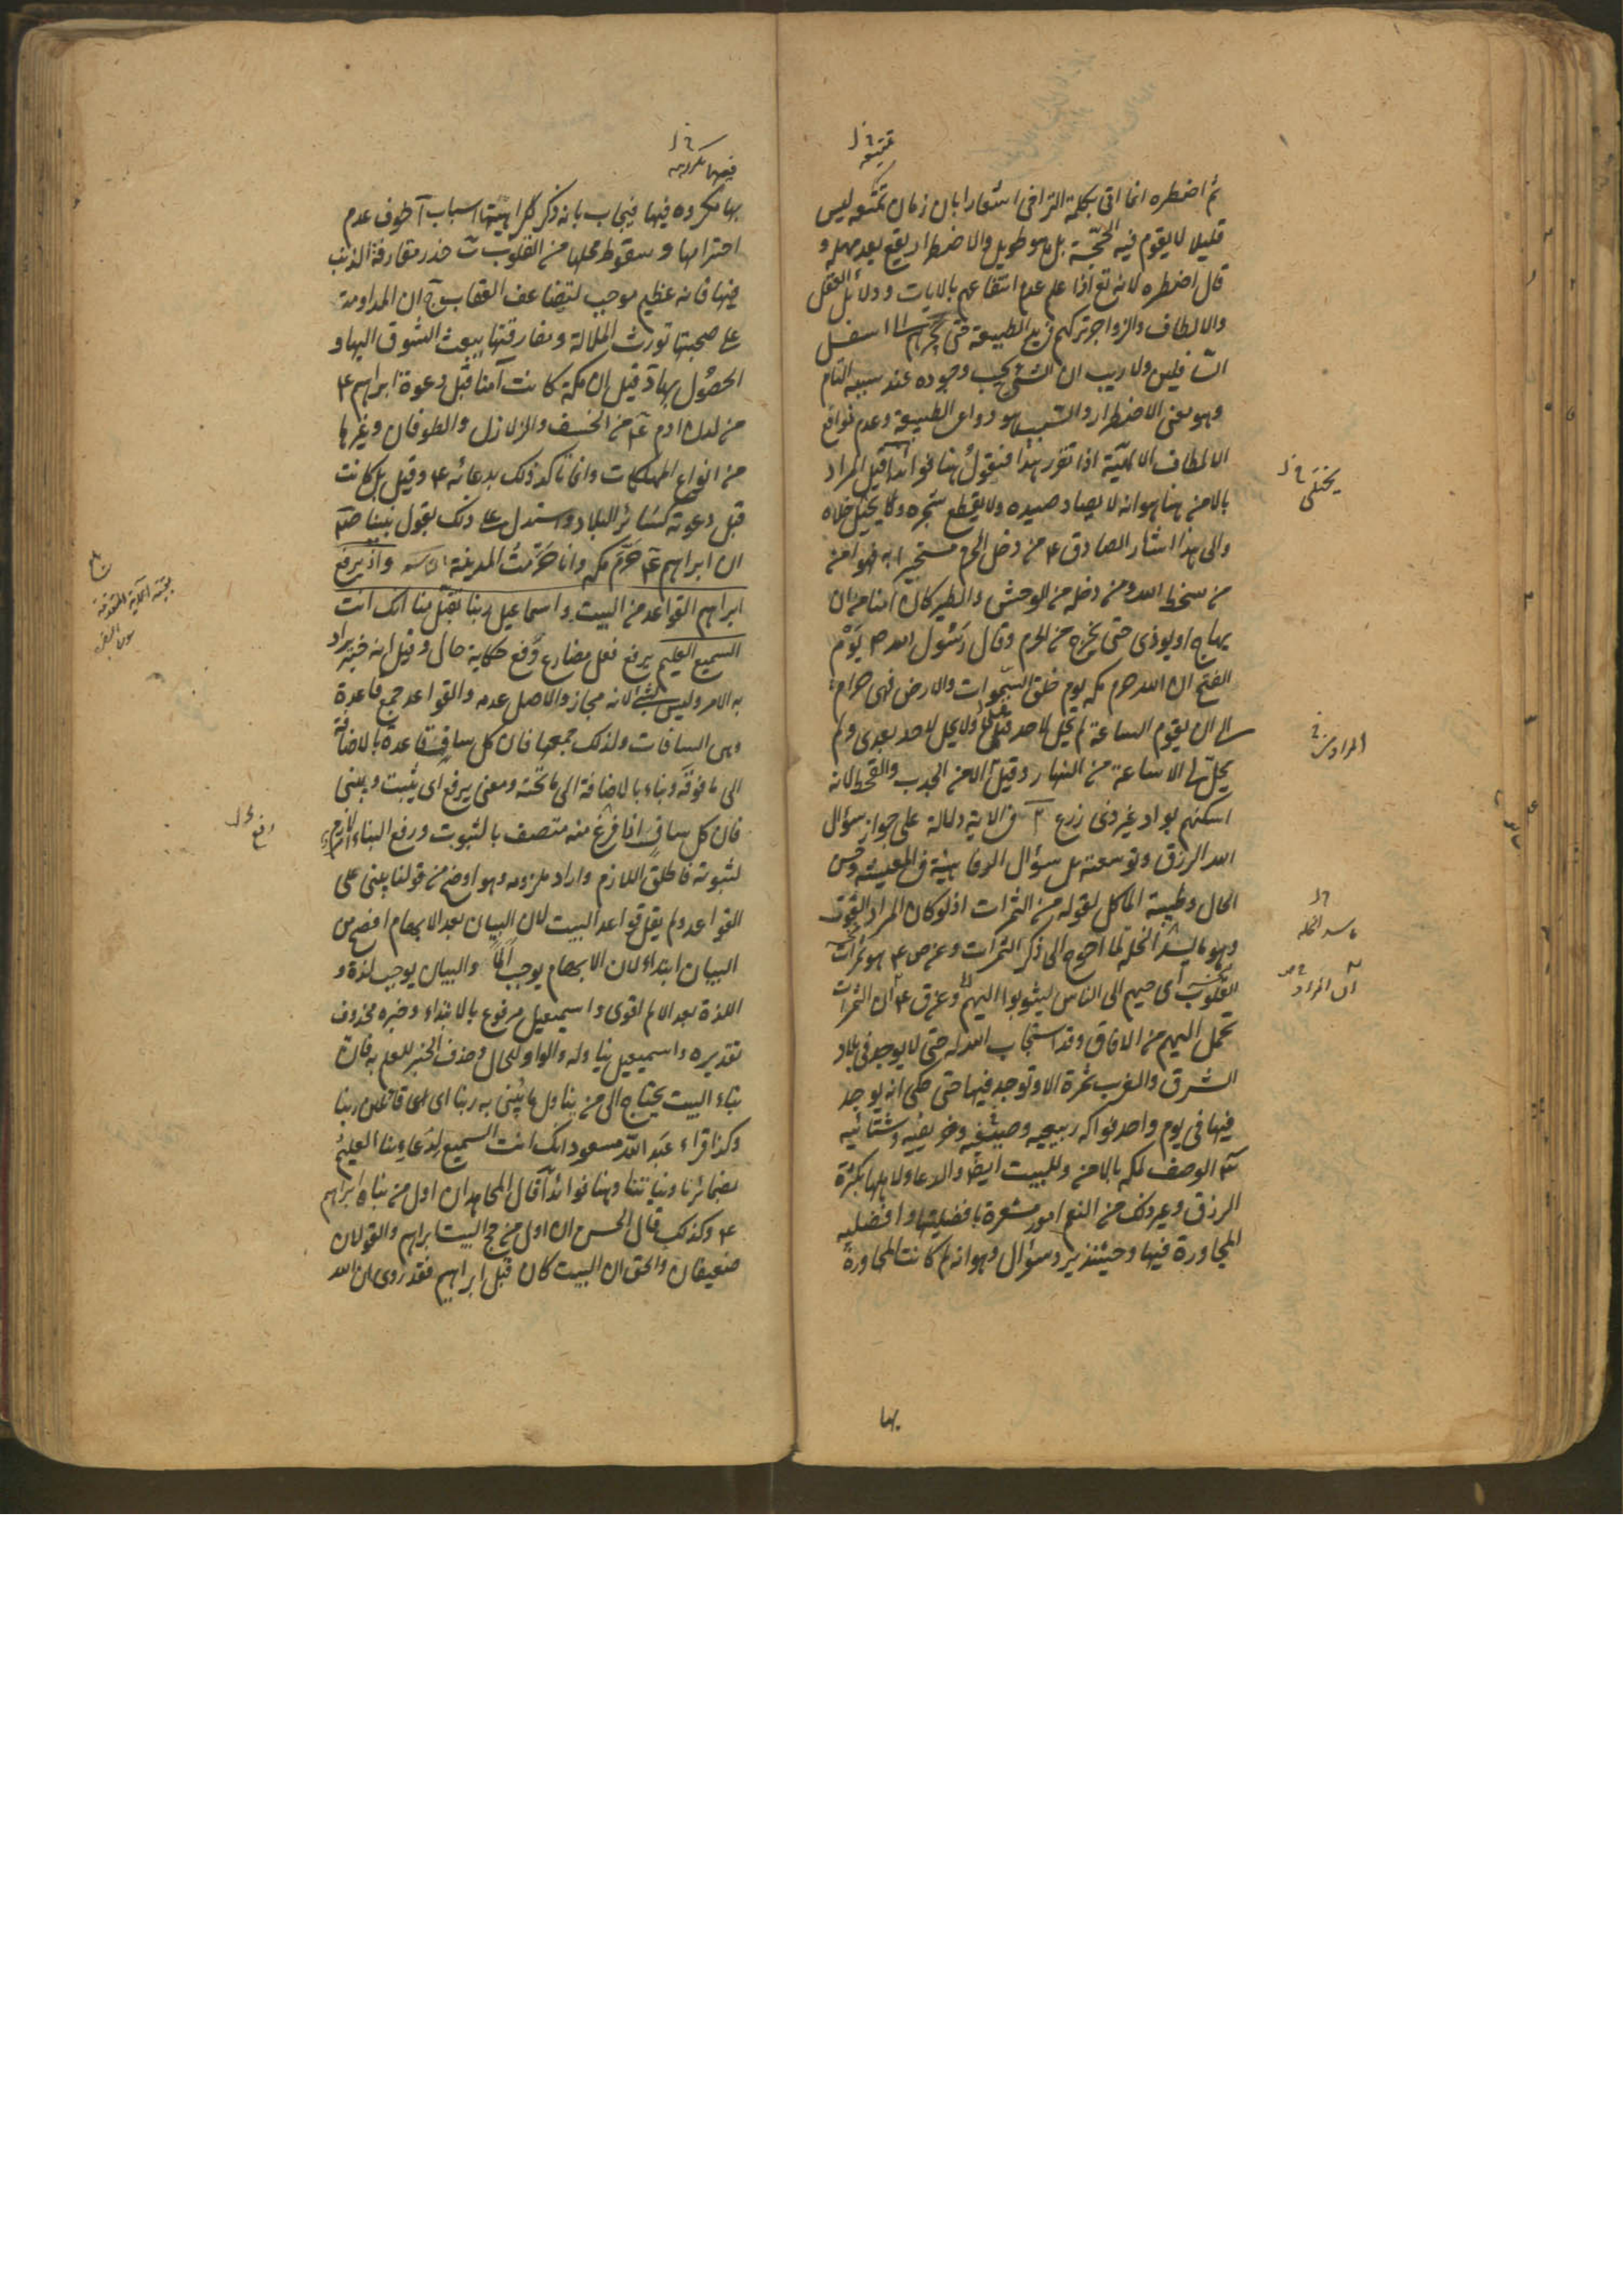 ثم اضطره انما اتى بكلمة التراخى اشعارا بان زمان تمتعه ليس
قليلا لا يقوم فيه الحجة بل هو طويل والاضطرار يقع بعد مهله و
قال اضطره لانه تع اذا علم عدم انتفاعهم بالايات ودلائل العقل
والالطاف والزواجر تركهم الطبيعة حتى اسفل
السافلين ولا ريب ان الشئ يجب وجوده عند سببه التام
وهو معنى الاضطرار والسبب هو دواعى الطبيعة وعدم موانع
الالطاف الالهية اذا تقرر هذا فنقول هنا فوائد آ قيل المراد
بالامن هنا هو انه لا يصاد صيده ولا يقطع شجره ولا يختلى خلاه
والى هذا اشار الصادق ع من دخل الحرم مستجيرا به فهو امن
من سخط الله ومن دخله من الوحش والطير كان آمنا من ان
يهاج او يوذى حتى يخرج من الحرم وقال رسول الله ص يوم
الفتح ان الله حرم مكه يوم خلق السموات والارض فهى حرام
الى ان يقوم الساعة لم يحل لاحد قبلى ولا يحل لاحد بعدى ولم
يحل لى الا ساعة من النهار وقيل الامن الجدب والقحط لانه
اسكنهم بواد غير ذى زرع فى الاية دلالة على جواز سؤال
الله الرزق وتوسعته بل سؤال الرفاهية فى المعيشة وحسن
الحال وطيبة الماكل لقوله من الثمرات اذ لو كان المراد القوت
وهو ما يسد الخلة لما احوج الى ذكر الثمرات وعن ص ع هو ثمرات
القلوب اى حبهم الى الناس ليثوبوا اليهم وعن ق ع ان الثمرات
تحمل اليهم من الافاق وقد استجاب الله له حتى لا يوجد فى بلاد
الشرق والغرب ثمرة الا وتوجد فيها حتى حكى انه يوجد
فيها فى يوم واحد فواكه ربيعيه وصيفيه وخريفيه وشتائيه
الوصف لمكه بالامن وللبيت ايضا والدعاء لاهلها بكثرة
الرزق وغير ذلك من النعم امور مشعرة بافضليتها وافضليه
المجاورة فيها وحينئذ يرد سؤال وهو انه لم كانت المجاورة
بها
يختلى خ ل
المراد من
ما سد الخلة
ان المراد
فيها مكروهه
بها مكروه فيها فيجاب بانه ذكر لكراهيتها اسباب آ خوف عدم
احترامها وسقوط محلها من القلوب ب حذر مقارفة الذنب
فيها فانه عظيم موجب لتضاعف العقاب ج ان المداومة
على صحبتها تورث الملالة ومفارقتها يبعث الشوق اليها و
الحصول بها د قيل ان مكة كانت آمنا قبل دعوة ابراهيم ع
من لدن ادم ع من الخسف والزلازل والطوفان وغيرها
من انواع المهلكات وانما تاكد ذلك بدعائه ع وقيل بل كانت
قبل دعوته كسائر البلاد واستدل على ذلك بقول نبينا ص
ان ابراهيم ع حرم مكه وانا حرمت المدينة واذ يرفع
ابراهيم القواعد من البيت واسماعيل ربنا تقبل منا انك انت
السميع العليم يرفع فعل مضارع وقع حكاية حال وقيل انه خبر يراد
به الامر وليس بشئ لانه مجاز والاصل عدمه والقواعد جمع قاعدة
وهى السافات ولذلك جمعها فان كل ساف قاعدة بالاضافة
الى ما فوقه وبناء بالاضافة الى ما تحته ومعنى يرفع اى يثبت ويبنى
فان كل ساف اذا فرغ منه متصف بالثبوت ورفع البناء لازم
لثبوته فاطلق اللازم واراد ملزومه وهو اوضح من قولنا يبنى على
القواعد ولم يقل قواعد البيت لان البيان بعد الابهام افصح من
البيان ابتداء لان الابهام يوجب ألما والبيان يوجب لذة و
اللذة بعد الالم اقوى واسمعيل مرفوع بالابتداء وخبره محذوف
تقديره واسمعيل يناوله والواو للحال وحذف الخبر للعلم به فان
بناء البيت يحتاج الى من يناول ما يبنى به ربنا اى قائلين ربنا
وكذا قراء عبد الله مسعود انك انت السميع لدعاءنا العليم
بضمائرنا ونياتنا وهنا فوائد آ قال المجاهد ان اول من بناه ابراهيم
ع وكذلك قال الحسن ان اول من حج البيت ابراهيم والقولان
ضعيفان والحق ان البيت كان قبل ابراهيم فقد روى ان الله